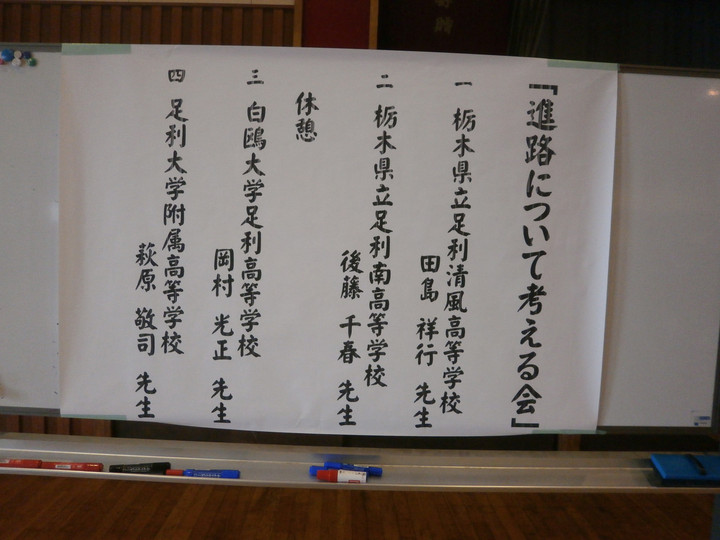 「進路について考える会」
一 栃木県立足利清風高等学校
田島 祥行 先生
二 栃木県立足利南高等学校
後藤 千春 先生
休憩
三 白鷗大学足利高等学校
岡村 光正 先生
四 足利大学附属高等学校
萩原 敬司 先生